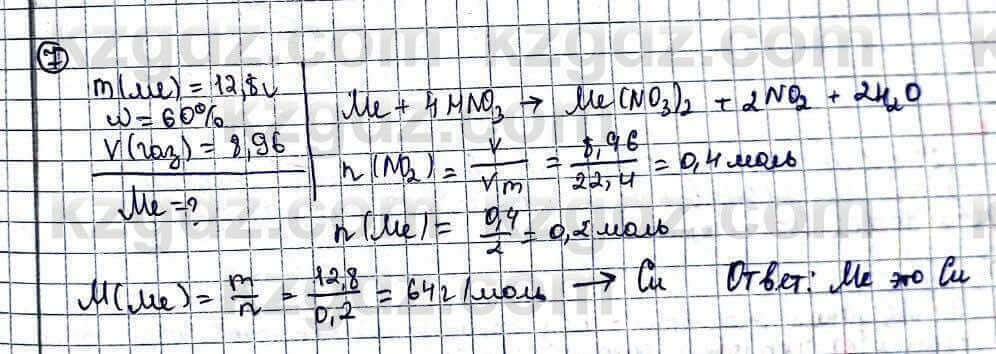 7
m(Me) = 12,8г
w = 60%
V(газ) = 8,96
Me = ?
Me + 4HNO3 → Me(NO3)2 + 2NO2 + 2H2O
n(NO2) = V/Vm = 8,96/22,4 = 0,4 моль
n(Me) = 0,4/2 = 0,2 моль
M(Me) = m/n = 12,8/0,2 = 64 г/моль → Cu Ответ: Me это Cu
kzgdz.com